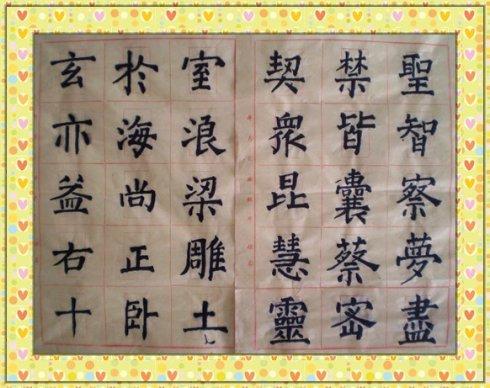 聖智察夢盡
禁皆囊蔡密
契衆昆慧靈
室浪梁雕土
於海尚正卧
玄亦益右十